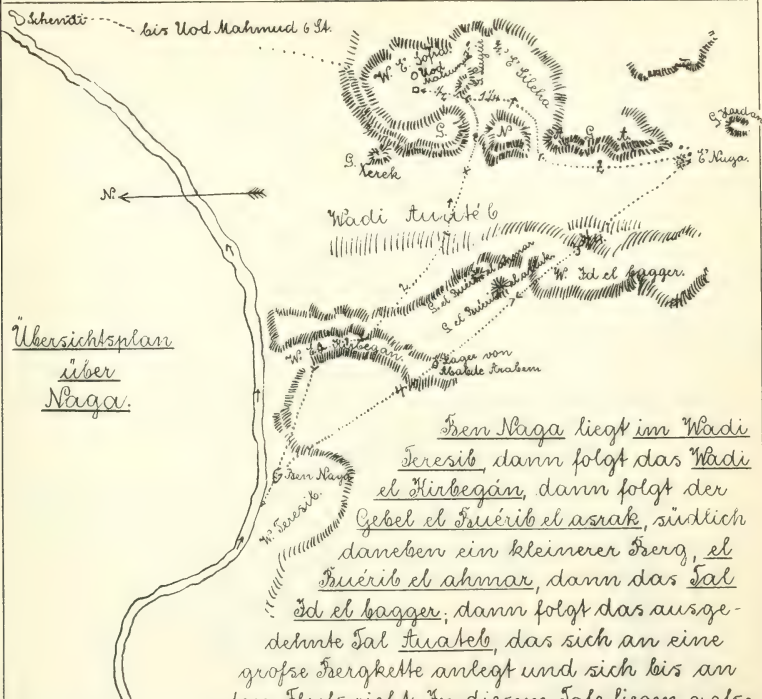 Schendi
bis Uod Mahmud 6 St.
W. E' Sofra.
Uod
Mahmud
½
1¼
W. E' Silcha
G.
N
G A.
G. Hardan
G. Kerek
2
E' Naga.
N.
Wadi Auatéb
3
W. Id el bagger.
G. el Buérib el ahmar
G. el Buérib el asrak
2
Übersichtsplan
über
Naga.
W. el Kirbegán.
Lager von
Ababde Arabern
4
Ben Naga
W. Teresib.
Ben Naga liegt im Wadi
Teresib, dann folgt das Wadi
el Kirbegán, dann folgt der
Gebel el Buérib el asrak, südlich
daneben ein kleinerer Berg, el
Buérib el ahmar, dann das Tal
Id el bagger; dann folgt das ausge-
dehnte Tal Auateb, das sich an eine
große Bergkette anlegt und sich bis an